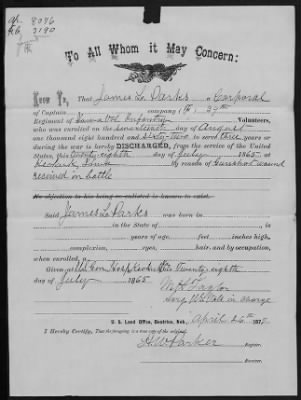 To All Whom it May Concern:
Know Ye, That James L. Parks a Corporal
of Captain company (K) 37th
Regiment of Iowa Vol Infantry Volunteers,
who was enrolled on the seventeenth day of August
one thousand eight hundred and Sixty-two to serve three years or
during the war is hereby DISCHARGED, from the service of the United
States, this twenty eighth day of July 1865 at
Keokuk Iowa by reason of Gunshot wound
received in battle
No objection to his being re-enlisted is known to exist.
Said James L. Parks was born in
in the State of , is
years of age, feet inches high,
complexion, eyes, hair, and by occupation,
when enrolled, a
Given at U.S. Gen. Hosp Keokuk this Twenty eighth
day of July 1865
M. K. Taylor
Surg U.S. Vols in charge
U. S. Land Office, Beatrice, Neb., April 26th 187
I Hereby Certify, That the foregoing is a true copy of the original.
H. W. Parker
Register.
Receiver.